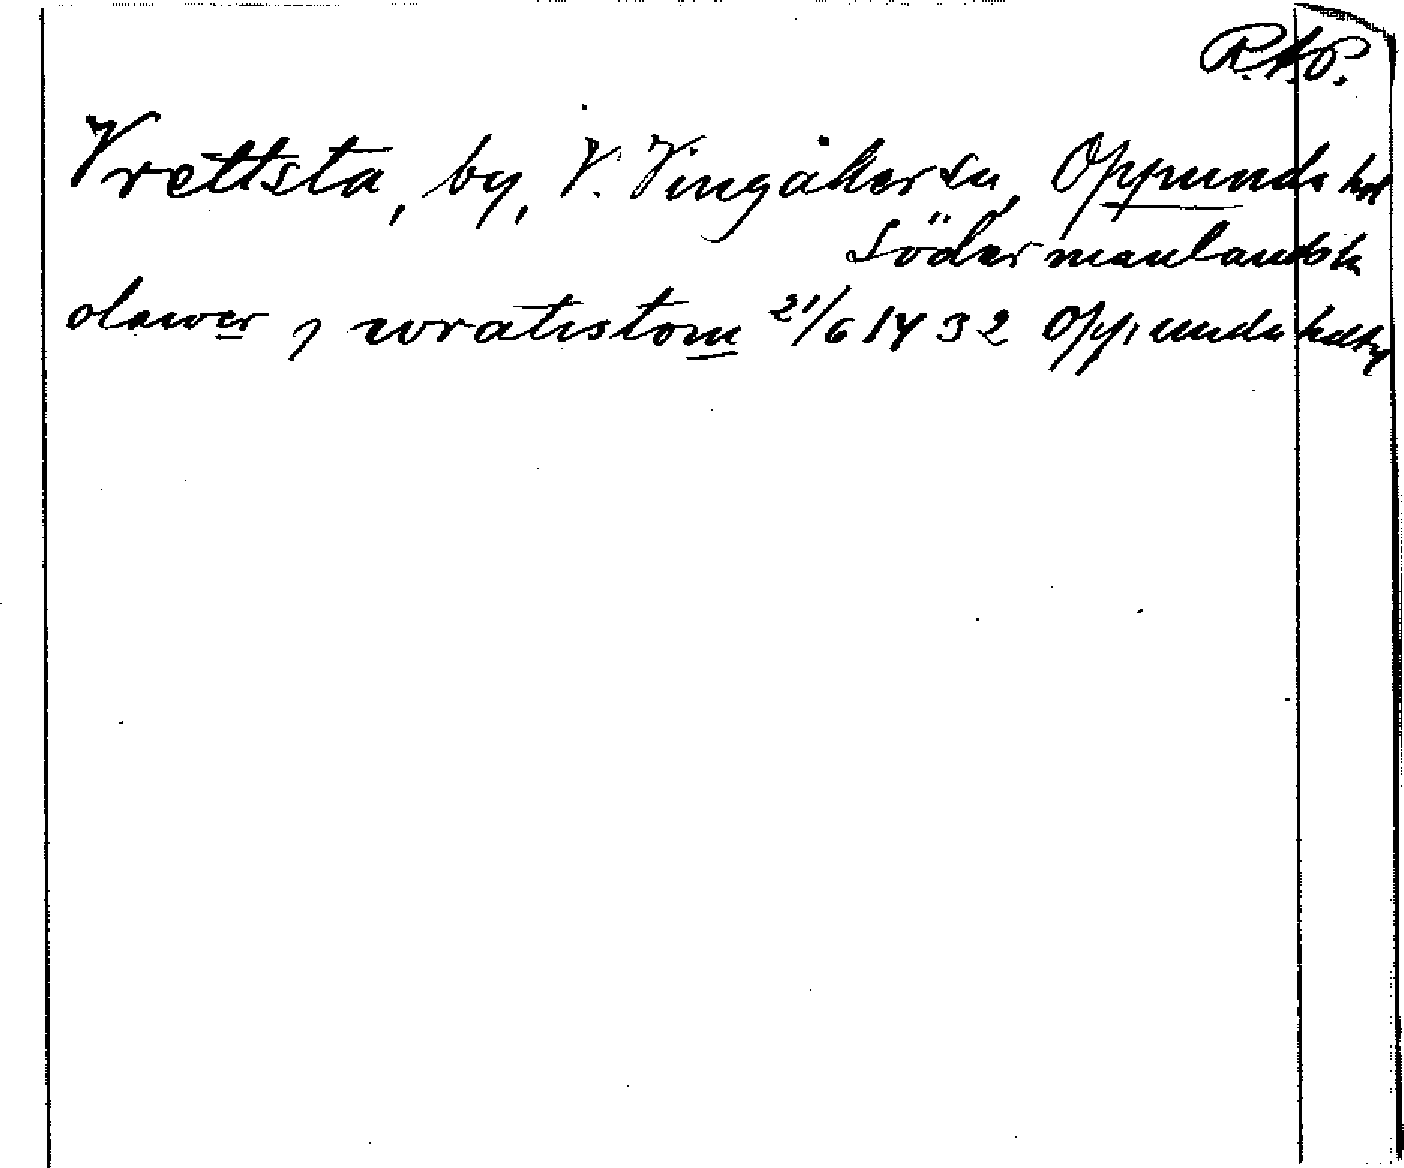 R.A.P.
Vrettsta, by, V. Vingåker sn, Oppunda hd
Södermanlands län
olawer j wratistom 21/6 1432 Oppunda